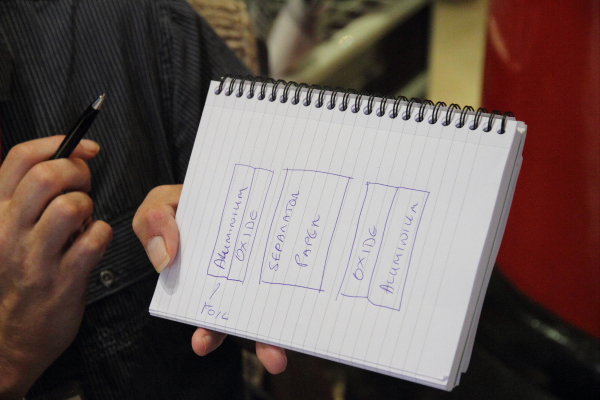 ALUMINIUM
OXIDE
SEPARATOR
PAPER
OXIDE
ALUMINIUM